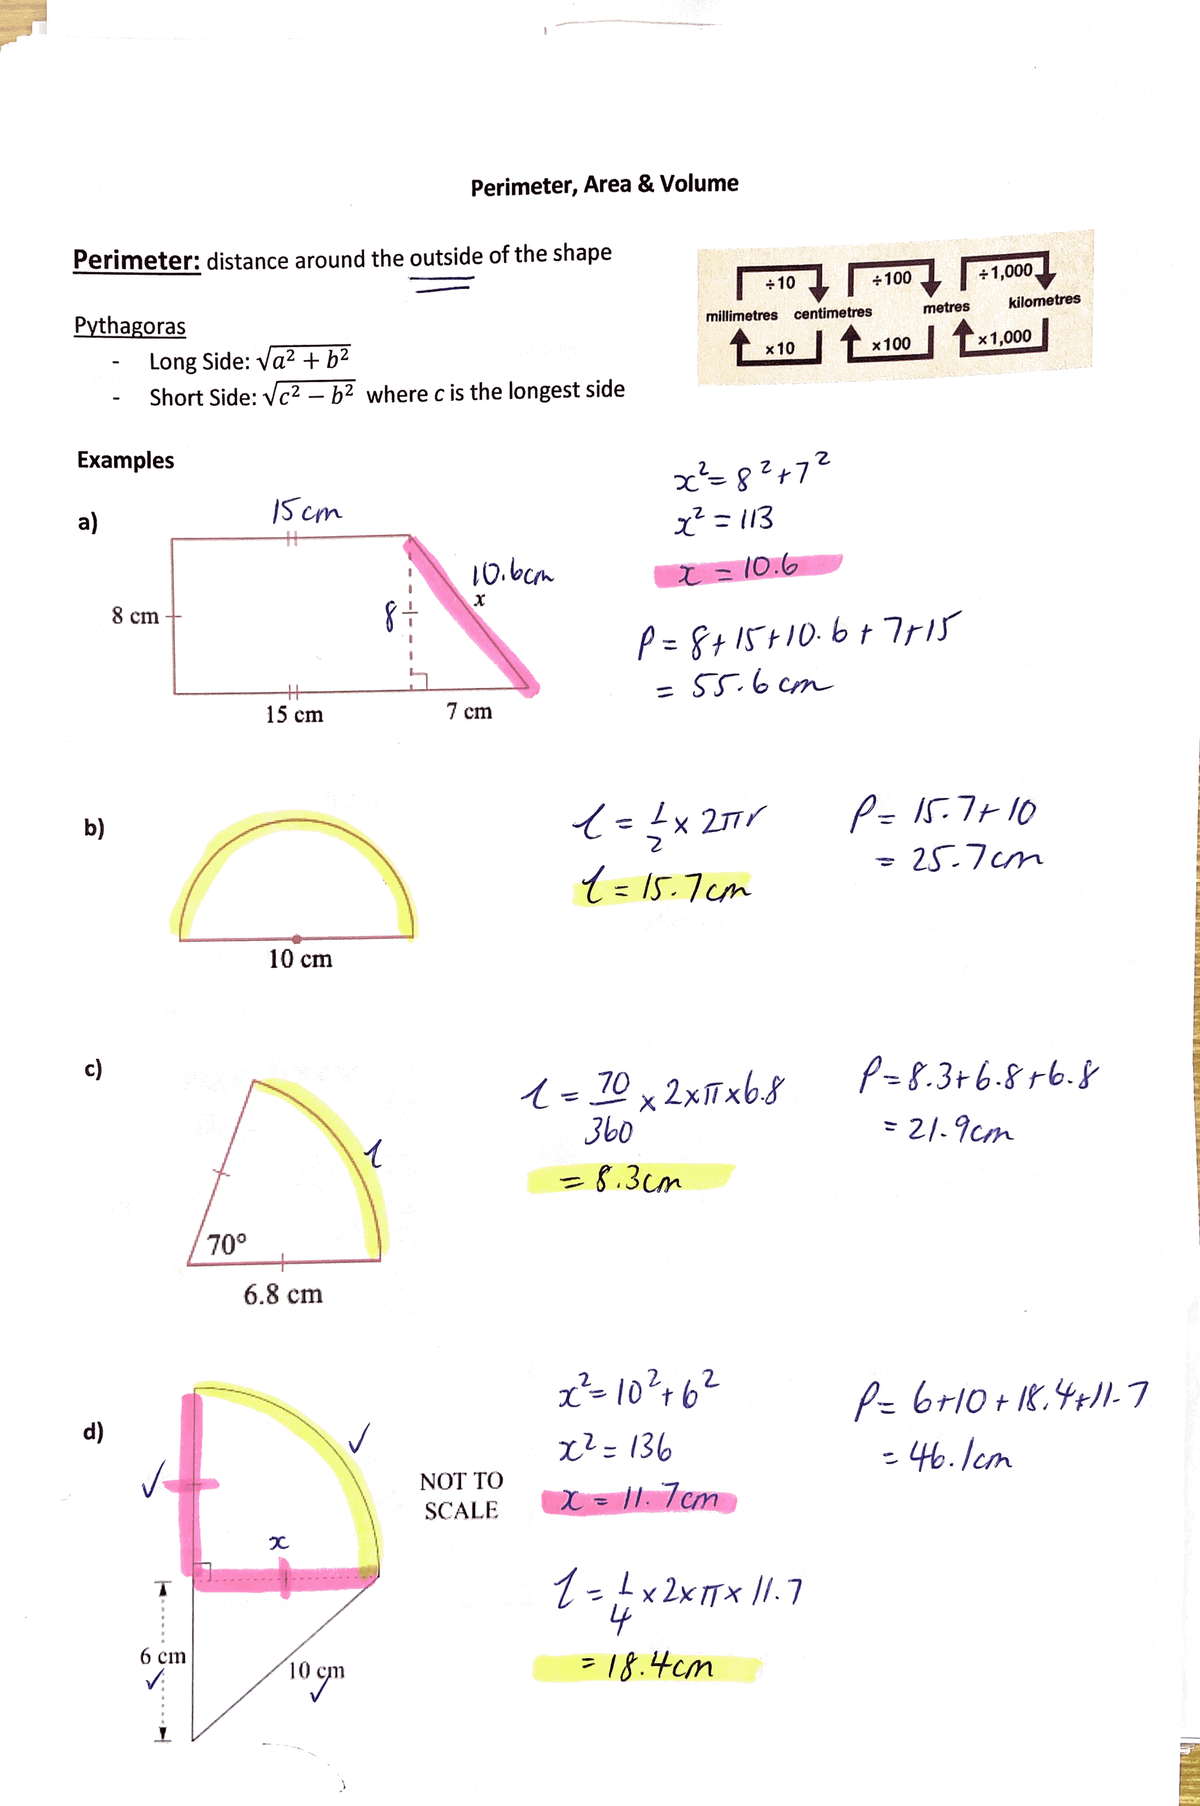 Perimeter, Area & Volume
Perimeter: distance around the outside of the shape
÷10 ÷100 ÷1,000
millimetres centimetres metres kilometres
×10 ×100 ×1,000
Pythagoras
- Long Side: √a² + b²
- Short Side: √c² − b² where c is the longest side
Examples
a)
15 cm
8 cm
8
10.6cm
x
15 cm
7 cm
x² = 8² + 7²
x² = 113
x = 10.6
P = 8 + 15 + 10.6 + 7 + 15
= 55.6 cm
b)
10 cm
l = 1/2 × 2πr
l = 15.7cm
P = 15.7 + 10
= 25.7cm
c)
l
70°
6.8 cm
l = 70/360 × 2×π×6.8
= 8.3cm
P = 8.3 + 6.8 + 6.8
= 21.9cm
d)
x
6 cm
10 cm
NOT TO
SCALE
x² = 10² + 6²
x² = 136
x = 11.7cm
l = 1/4 × 2×π× 11.7
= 18.4cm
P = 6 + 10 + 18.4 + 11.7
= 46.1cm